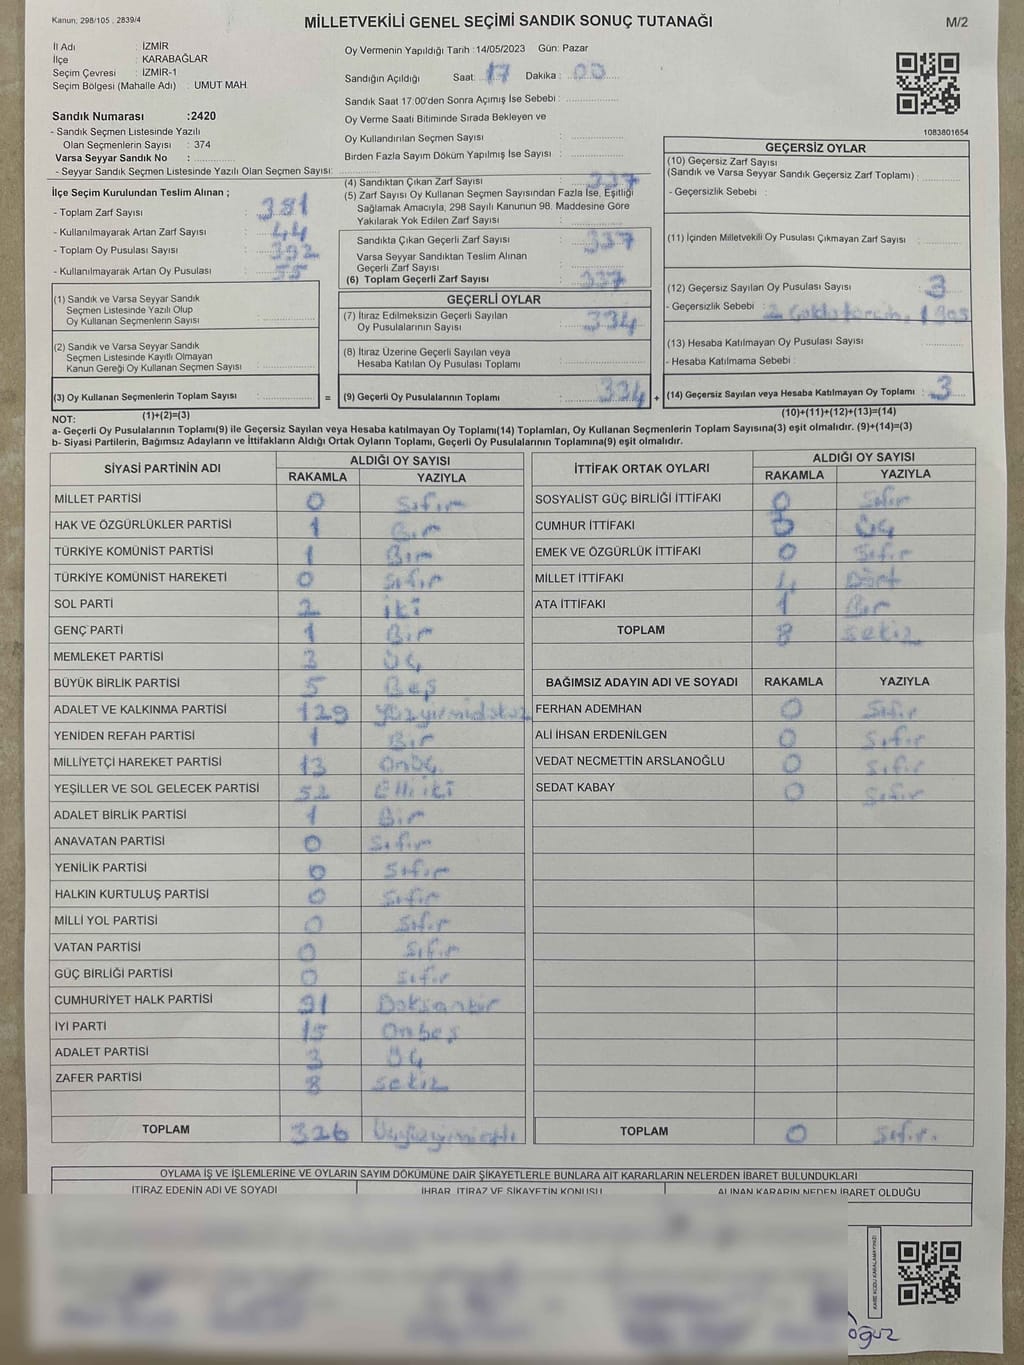 Kanun, 298/105 , 2839/4
MİLLETVEKİLİ GENEL SEÇİMİ SANDIK SONUÇ TUTANAĞI
M/2
İl Adı : İZMİR
İlçe : KARABAĞLAR
Seçim Çevresi : İZMİR-1
Seçim Bölgesi (Mahalle Adı) : UMUT MAH
Sandık Numarası :2420
- Sandık Seçmen Listesinde Yazılı
Olan Seçmenlerin Sayısı : 374
Varsa Seyyar Sandık No :
- Seyyar Sandık Seçmen Listesinde Yazılı Olan Seçmen Sayısı:
Oy Vermenin Yapıldığı Tarih :14/05/2023 Gün: Pazar
Sandığın Açıldığı Saat: 17 Dakika : 00
Sandık Saat 17:00'den Sonra Açımış İse Sebebi :
Oy Verme Saati Bitiminde Sırada Bekleyen ve
Oy Kullandırılan Seçmen Sayısı :
Birden Fazla Sayım Döküm Yapılmış İse Sayısı :
1083801654
İlçe Seçim Kurulundan Teslim Alınan ;
- Toplam Zarf Sayısı : 381
- Kullanılmayarak Artan Zarf Sayısı : 44
- Toplam Oy Pusulası Sayısı : 392
- Kullanılmayarak Artan Oy Pusulası : 55
(1) Sandık ve Varsa Seyyar Sandık
Seçmen Listesinde Yazılı Olup
Oy Kullanan Seçmenlerin Sayısı :
(2) Sandık ve Varsa Seyyar Sandık
Seçmen Listesinde Kayıtlı Olmayan
Kanun Gereği Oy Kullanan Seçmen Sayısı :
(3) Oy Kullanan Seçmenlerin Toplam Sayısı :
(1)+(2)=(3)
(4) Sandıktan Çıkan Zarf Sayısı : 337
(5) Zarf Sayısı Oy Kullanan Seçmen Sayısından Fazla İse, Eşitliği
Sağlamak Amacıyla, 298 Sayılı Kanunun 98. Maddesine Göre
Yakılarak Yok Edilen Zarf Sayısı :
Sandıkta Çıkan Geçerli Zarf Sayısı : 337
Varsa Seyyar Sandıktan Teslim Alınan
Geçerli Zarf Sayısı :
(6) Toplam Geçerli Zarf Sayısı : 337
GEÇERLİ OYLAR
(7) İtiraz Edilmeksizin Geçerli Sayılan
Oy Pusulalarının Sayısı : 334
(8) İtiraz Üzerine Geçerli Sayılan veya
Hesaba Katılan Oy Pusulası Toplamı :
= (9) Geçerli Oy Pusulalarının Toplamı : 334 +
GEÇERSİZ OYLAR
(10) Geçersiz Zarf Sayısı
(Sandık ve Varsa Seyyar Sandık Geçersiz Zarf Toplamı) :
- Geçersizlik Sebebi :
(11) İçinden Milletvekili Oy Pusulası Çıkmayan Zarf Sayısı :
(12) Geçersiz Sayılan Oy Pusulası Sayısı : 3
- Geçersizlik Sebebi : 2
(13) Hesaba Katılmayan Oy Pusulası Sayısı :
- Hesaba Katılmama Sebebi :
(14) Geçersiz Sayılan veya Hesaba Katılmayan Oy Toplamı : 3
(10)+(11)+(12)+(13)=(14)
NOT:
a- Geçerli Oy Pusulalarının Toplamı(9) ile Geçersiz Sayılan veya Hesaba katılmayan Oy Toplamı(14) Toplamları, Oy Kullanan Seçmenlerin Toplam Sayısına(3) eşit olmalıdır. (9)+(14)=(3)
b- Siyasi Partilerin, Bağımsız Adayların ve İttifakların Aldığı Ortak Oyların Toplamı, Geçerli Oy Pusulalarının Toplamına(9) eşit olmalıdır.
SİYASİ PARTİNİN ADI ALDIĞI OY SAYISI
RAKAMLA YAZIYLA
MİLLET PARTİSİ 0 Sıfır
HAK VE ÖZGÜRLÜKLER PARTİSİ 1 Bir
TÜRKİYE KOMÜNİST PARTİSİ 1 Bir
TÜRKİYE KOMÜNİST HAREKETİ 0 Sıfır
SOL PARTİ 2 iki
GENÇ PARTİ 1 Bir
MEMLEKET PARTİSİ 3 Üç
BÜYÜK BİRLİK PARTİSİ 5 Beş
ADALET VE KALKINMA PARTİSİ 129 yüzyirmidokuz
YENİDEN REFAH PARTİSİ 1 Bir
MİLLİYETÇİ HAREKET PARTİSİ 13 Onüç
YEŞİLLER VE SOL GELECEK PARTİSİ 52 Elliiki
ADALET BİRLİK PARTİSİ 1 Bir
ANAVATAN PARTİSİ 0 Sıfır
YENİLİK PARTİSİ 0 Sıfır
HALKIN KURTULUŞ PARTİSİ 0 Sıfır
MİLLİ YOL PARTİSİ 0 Sıfır
VATAN PARTİSİ 0 Sıfır
GÜÇ BİRLİĞİ PARTİSİ 0 Sıfır
CUMHURİYET HALK PARTİSİ 91 Doksanbir
İYİ PARTİ 15 Onbeş
ADALET PARTİSİ 3 Üç
ZAFER PARTİSİ 8 sekiz
TOPLAM 326 Üçyüzyirmialtı
İTTİFAK ORTAK OYLARI ALDIĞI OY SAYISI
RAKAMLA YAZIYLA
SOSYALİST GÜÇ BİRLİĞİ İTTİFAKI 0 Sıfır
CUMHUR İTTİFAKI 3 Üç
EMEK VE ÖZGÜRLÜK İTTİFAKI 0 Sıfır
MİLLET İTTİFAKI 4 Dört
ATA İTTİFAKI 1 Bir
TOPLAM 8 sekiz
BAĞIMSIZ ADAYIN ADI VE SOYADI RAKAMLA YAZIYLA
FERHAN ADEMHAN 0 Sıfır
ALİ İHSAN ERDENİLGEN 0 Sıfır
VEDAT NECMETTİN ARSLANOĞLU 0 Sıfır
SEDAT KABAY 0 Sıfır
TOPLAM 0 Sıfır.
OYLAMA İŞ VE İŞLEMLERİNE VE OYLARIN SAYIM DÖKÜMÜNE DAİR ŞİKAYETLERLE BUNLARA AİT KARARLARIN NELERDEN İBARET BULUNDUKLARI
İTİRAZ EDENİN ADI VE SOYADI İHBAR, İTİRAZ VE ŞİKAYETİN KONUSU ALINAN KARARIN NEDEN İBARET OLDUĞU
KARE KODU KARALAMAYINIZ!
oğuz